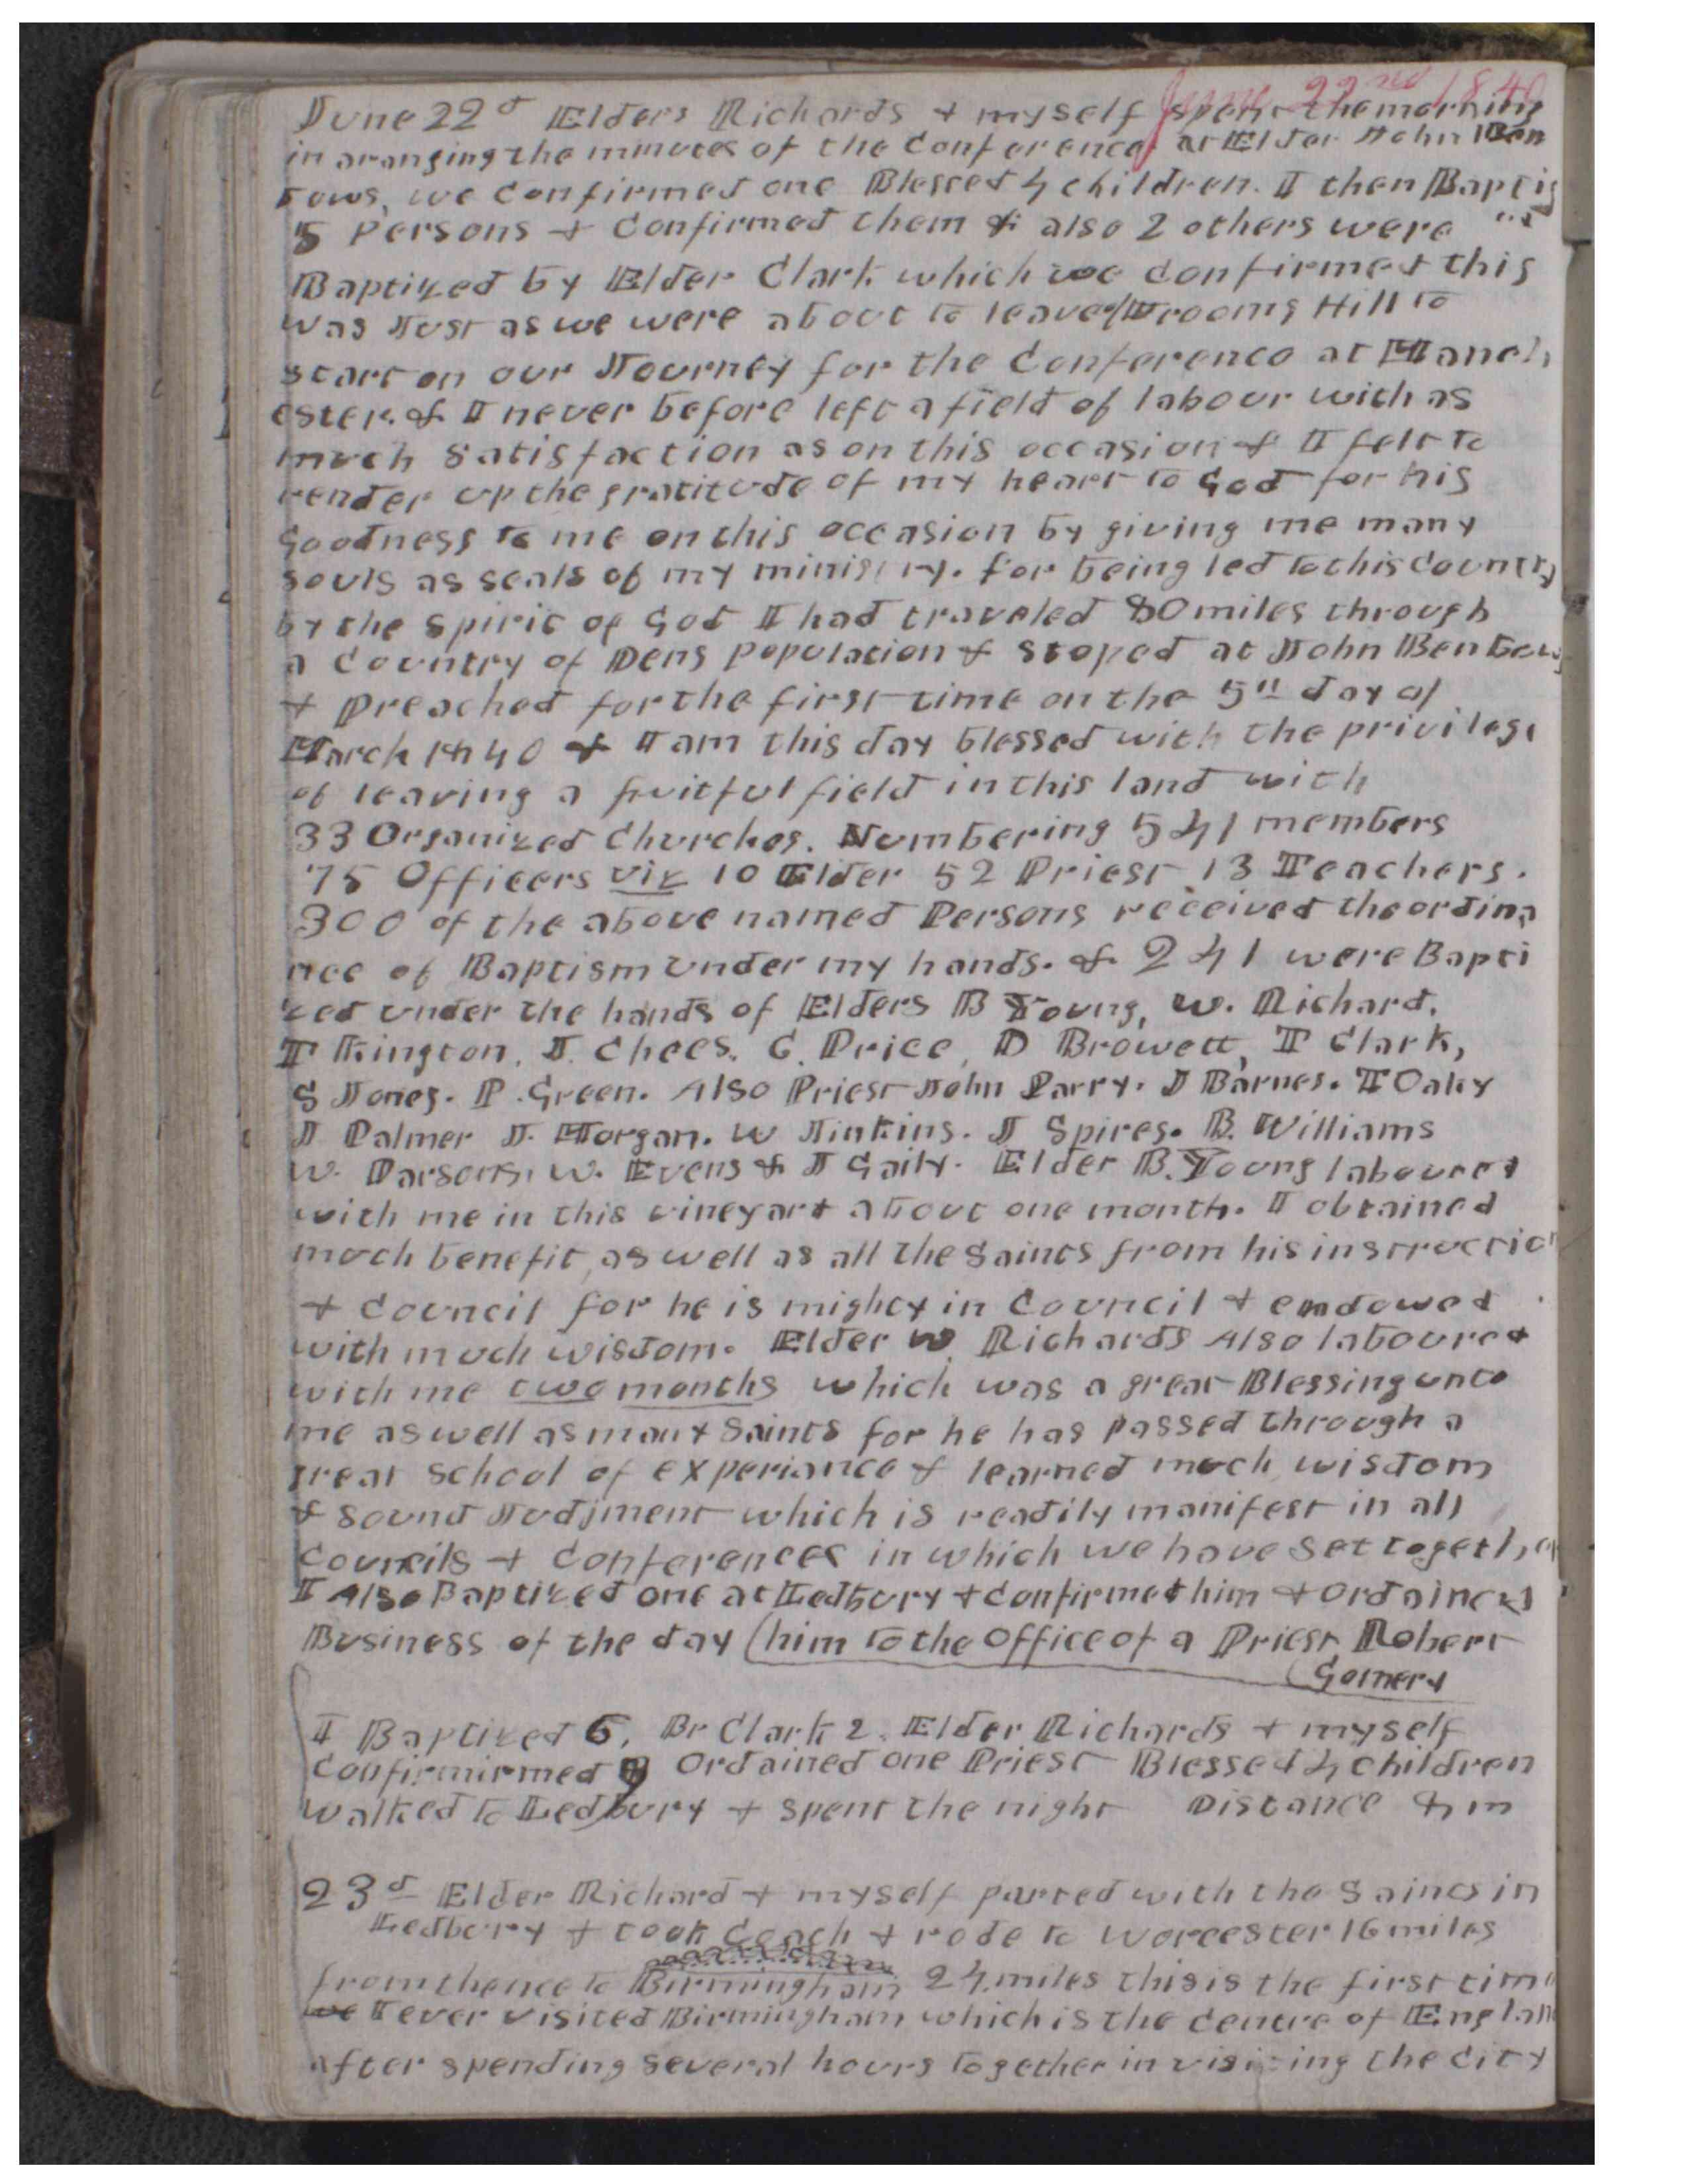 June 22nd 1840
June 22d Elders Richards & myself spent the morning
in aranging the minutes of the Conference at Elder John Ben
bows, we confirmed one Blessed 4 children. I then Baptiz
5 Persons & Confirmed them & also 2 others were
Baptized by Elder Clark which we confirmed this
was Just as we were about to leave Frooms Hill to
start on our Journey for the Conference at Manch
ester. & I never before left a field of labour with as
much satisfaction as on this occasion & I felt to
render up the gratitude of my heart to God for his
goodness to me on this occasion by giving me many
souls as seals of my ministry. for being led to this County
by the spirit of God I had traveled 80 miles through
a Country of Dens population & stoped at John Benbows
& Preached for the first time on the 5th day of
March 1840 & I am this day blessed with the privilege
of leaving a fruitful field in this land with
33 Organized Churches. Numbering 541 members
75 Officers viz 10 Elder 52 Priest 13 Teachers.
300 of the above named Persons received the ordina
nce of Baptism under my hands. & 241 were Bapti
zed under the hands of Elders B Young, W. Richard,
T Kington, J. Chees. C. Price, D Browett, T Clark,
S Jones. P. Green. Also Priest John Parry. J Barnes. T Oaky
J Palmer J. Morgan. W Jinkins. J Spires. B. Williams
W. Parsons, W. Evens & J Gaily. Elder B. Young laboured
with me in this vineyard about one month. I obtained
much benefit, as well as all the Saints from his instruction
& Council for he is mighty in Council & endowed
with much wisdom. Elder W. Richards Also laboured
with me two months which was a great Blessing unto
me as well as many Saints for he has passed through a
great School of experiance & learned much wisdom
& sound Judjment which is readily manifest in all
Councils & Conferences in which we have set together
I Also Baptized one at Ledbury & confirmed him & ordained
Business of the day (him to the Office of a Priest Robert
(Gomery
I Baptized 6, Br Clark 2. Elder Richards & myself
Confirmirmed 9 Ordained one Priest Blessed 4 children
walked to Ledbury & spent the night Distance 4 m
23d Elder Richard & myself parted with the Saints in
Ledbury & took Coach & rode to Worcester 16 miles
from thence to Birmingham 24 miles this is the first time
we I ever visited Birmingham which is the centre of England
after spending several hours together in visiting the City